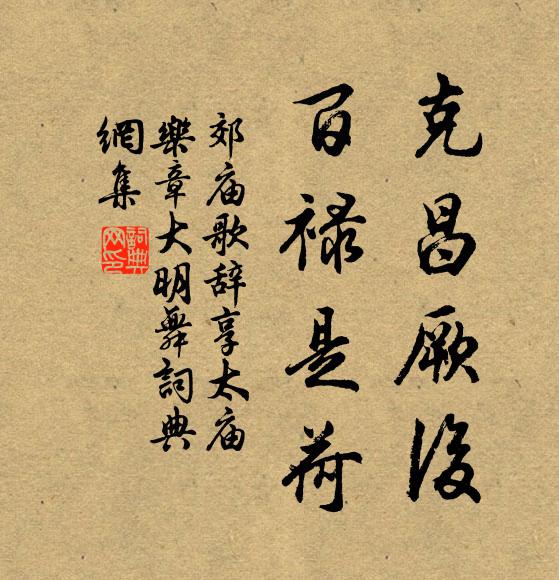 克昌厥後
百禄是荷
郊庙歌辞享太庙
樂章大明舞詞典
網集
詞典網印